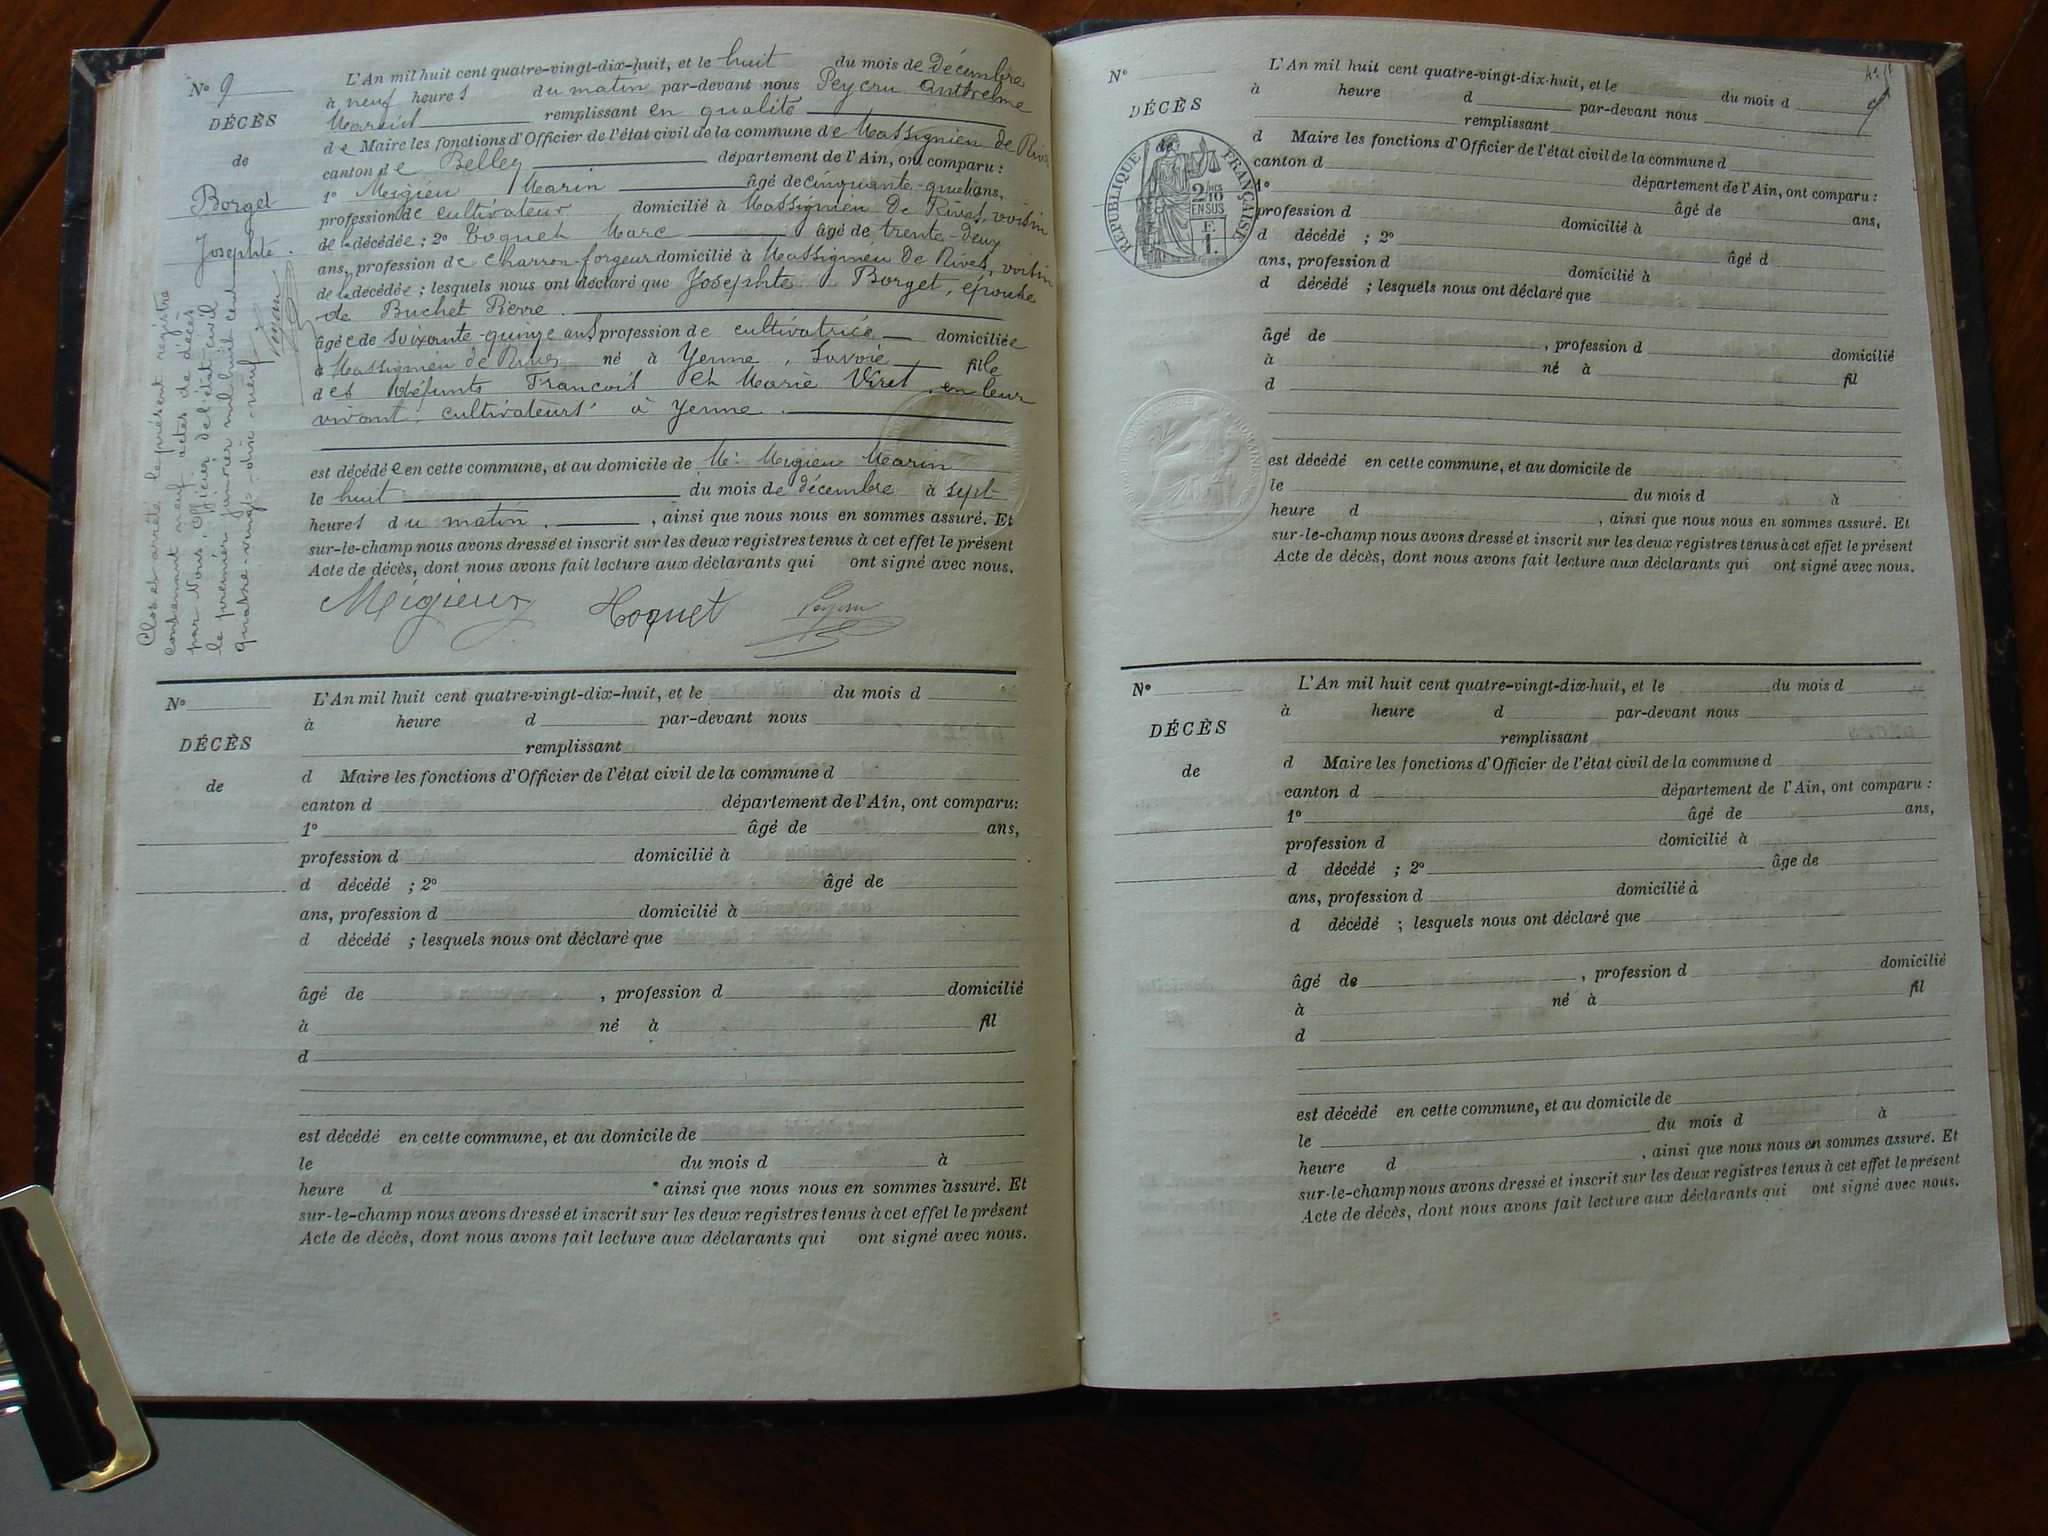 N° 9
DÉCÈS
de
Borget
Josephte.
L'An mil huit cent quatre-vingt-dix-huit, et le huit du mois de Décembre
à neuf heures du matin par-devant nous Peycru Anthelme
Marius remplissant en qualité
de Maire les fonctions d'Officier de l'état civil de la commune de Massignieu de Rives
canton de Belley département de l'Ain, ont comparu :
1° Migieu Marin âgé de cinquante- ans,
profession de cultivateur domicilié à Massignieu de Rives, voisin
de la décédée ; 2° Toquet Marc âgé de trente-deux
ans, profession de charron-forgeur domicilié à Massignieu de Rives, voisin
de la décédée ; lesquels nous ont déclaré que Josephte Borget, épouse
de Buchet Pierre
âgée de soixante-quinze ans, profession de cultivatrice domiciliée
à Massignieu de Rives né à Yenne, Savoie fille
des défunts François et Marie Viret, en leur
vivant, cultivateurs à Yenne.
est décédée en cette commune, et au domicile de Mr Migieu Marin
le huit du mois de décembre à sept
heures du matin, , ainsi que nous nous en sommes assuré. Et
sur-le-champ nous avons dressé et inscrit sur les deux registres tenus à cet effet le présent
Acte de décès, dont nous avons fait lecture aux déclarants qui ont signé avec nous.
Migieu Toquet Peycru
Clos et arrêté le présent registre
contenant neuf actes de décès
par Nous, Officier de l'état civil
le premier janvier mil huit cent
quatre-vingt-dix-neuf
Peycru
N°
DÉCÈS
de
L'An mil huit cent quatre-vingt-dix-huit, et le du mois d
à heure d par-devant nous
remplissant
d Maire les fonctions d'Officier de l'état civil de la commune d
canton d département de l'Ain, ont comparu:
1° âgé de ans,
profession d domicilié à
d décédé ; 2° âgé de
ans, profession d domicilié à
d décédé ; lesquels nous ont déclaré que
âgé de , profession d domicilié
à né à fil
d
est décédé en cette commune, et au domicile de
le du mois d à
heure d ainsi que nous nous en sommes assuré. Et
sur-le-champ nous avons dressé et inscrit sur les deux registres tenus à cet effet le présent
Acte de décès, dont nous avons fait lecture aux déclarants qui ont signé avec nous.
N°
DÉCÈS
de
RÉPUBLIQUE FRANÇAISE
2/10
EN SUS
1 F.
L'An mil huit cent quatre-vingt-dix-huit, et le du mois d
à heure d par-devant nous
remplissant
d Maire les fonctions d'Officier de l'état civil de la commune d
canton d département de l'Ain, ont comparu :
1° âgé de ans,
profession d domicilié à
d décédé ; 2° âgé d
ans, profession d domicilié à
d décédé ; lesquels nous ont déclaré que
âgé de , profession d domicilié
à né à fil
d
est décédé en cette commune, et au domicile de
le du mois d à
heure d , ainsi que nous nous en sommes assuré. Et
sur-le-champ nous avons dressé et inscrit sur les deux registres tenus à cet effet le présent
Acte de décès, dont nous avons fait lecture aux déclarants qui ont signé avec nous.
N°
DÉCÈS
de
L'An mil huit cent quatre-vingt-dix-huit, et le du mois d
à heure d par-devant nous
remplissant
d Maire les fonctions d'Officier de l'état civil de la commune d
canton d département de l'Ain, ont comparu :
1° âgé de ans,
profession d domicilié à
d décédé ; 2° âge de
ans, profession d domicilié à
d décédé ; lesquels nous ont déclaré que
âgé de , profession d domicilié
à né à fil
d
est décédé en cette commune, et au domicile de
le du mois d à
heure d , ainsi que nous nous en sommes assuré. Et
sur-le-champ nous avons dressé et inscrit sur les deux registres tenus à cet effet le présent
Acte de décès, dont nous avons fait lecture aux déclarants qui ont signé avec nous.